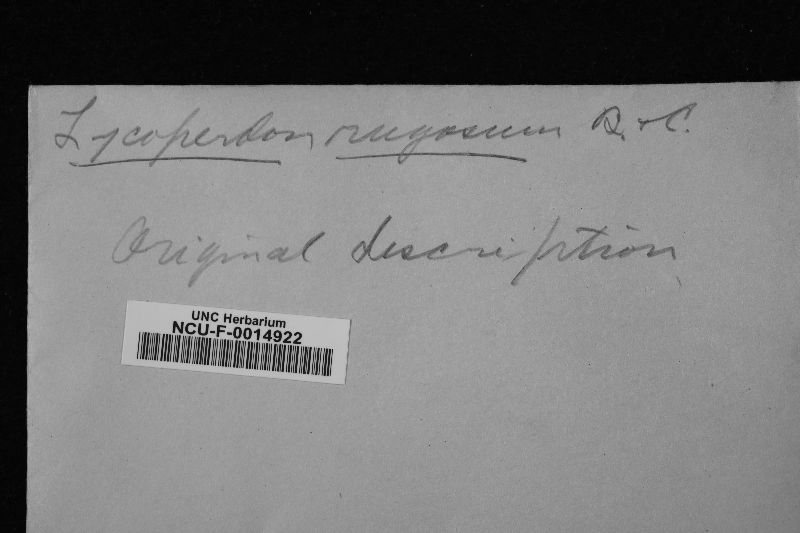 Lycoperdon rugosum B. & C.
Original description
UNC Herbarium
NCU-F-0014922